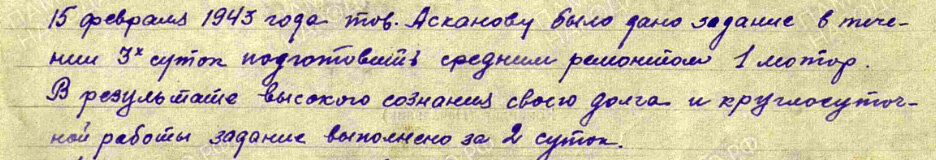 15 февраля 1943 года тов. Асканову было дано задание в тече-
нии 3х суток подготовить средним ремонтом 1 мотор.
В результате высокого сознания своего долга и круглосуточ-
ной работы задание выполнено за 2 суток.